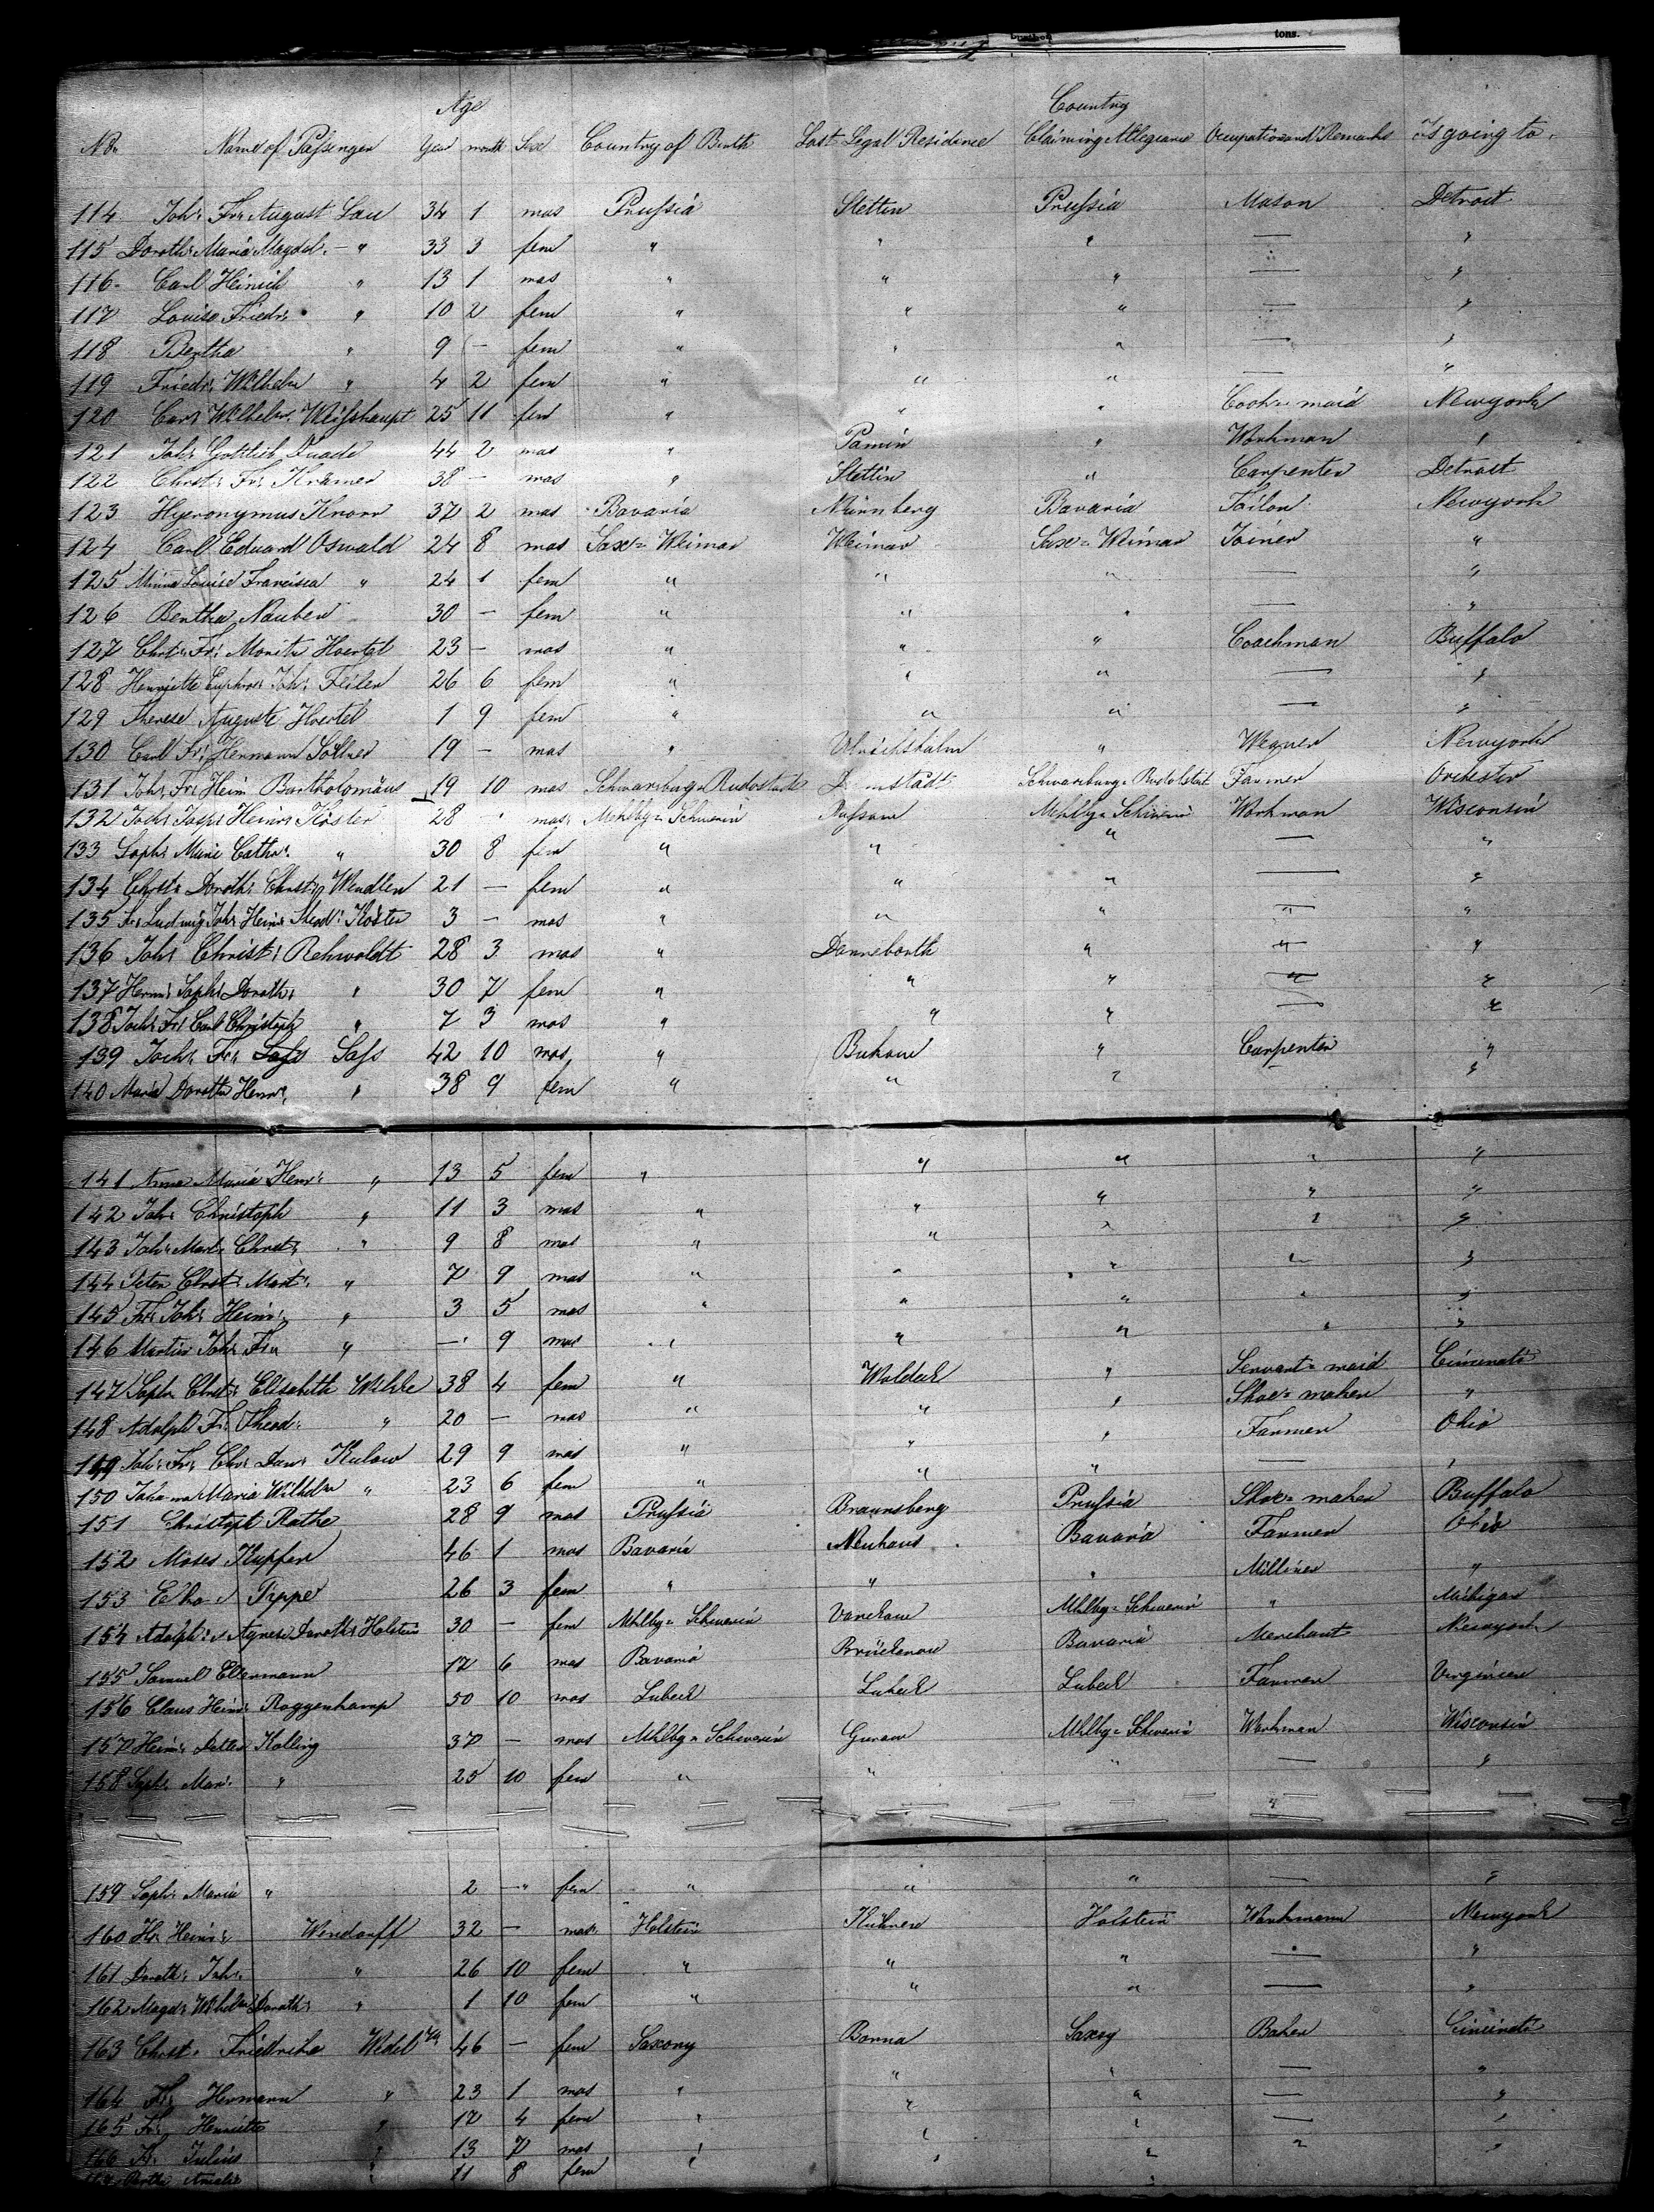 tons.
Age Country
No. Name of Passenger Year month Sex Country of Birth Last Legal Residence Claiming Allegiance Occupation and Remarks Is going to.
114 Joh: Fr: August Lau 34 1 mas Prussia Stettin Prussia Mason Detroit
115 Doroth: Maria Magdal. - " 33 3 fem " " " — "
116. Carl Heinich " 13 1 mas " " " — "
117 Louise Friedr: " 10 2 fem " " " — "
118 Bertha " 9 — fem " " " — "
119 Friedr: Wilhelm " 4 2 fem " " " — "
120 Carl Wilhelm. Weisshaupt 25 11 fem " " " Cook = maid Newyork
121 Joh: Gottlieb Quade 44 2 mas " Pamin " Workman "
122 Christ: Fr: Kramer 38 — mas " Stettin " Carpenter Detroit
123 Hyeronymus Knorr 37 2 mas Bavaria Nürnberg Bavaria Tailor Newyork
124 Carl Eduard Oswald 24 8 mas Saxe = Weimar Weimar Saxe = Weimar Joiner "
125 Minna Louise Francisca " 24 1 fem " " " — "
126 Bertha Nauber 30 — fem " " " — "
127 Christ: Fr: Moritz Hoertel 23 — mas " " " Coachman Buffalo
128 Henriette Euphros: Joh: Feiler 26 6 fem " " " — "
129 Therese Auguste Hoertel 1 9 fem " " " — "
130 Carl Fr: Hermann Söllner 19 — mas " " Wegner Newyork
131 Joh: Fr: Heinr Bartholomäus 19 10 mas Schwarzburg = Rudostadt Schwarzburg = Rudolstat Farmer Orchester
132 Joch: Joch: Heinr: Köster 28 — mas: Mcklbg = Schwerin Mcklbg = Schwerin Workman Wisconsin
133 Soph: Marie Cathr: " 30 8 fem " " " — "
134 Christ: Doroth: Christ: Wendler 21 — fem " " " — "
135 Fr: Ludwig Joh: Heinr: Theod: Köster 3 — mas " " " — "
136 Joh: Christ: Rehwoldt 28 3 mas " Danneborth " " "
137 Henr: Soph: Doroth: " 30 7 fem " " " — "
138 Joch: Fr: Carl Christoph " 7 3 mas " " " — "
139 Joch: Fr: Sass Sass 42 10 mas " Bukow " Carpenter "
140 Maria Doroth Henr: " 38 9 fem " " " "
141 Anna Maria Henr: " 13 5 fem " " " " "
142 Joh: Christoph " 11 3 mas " " " " "
143 Joh: Mart: Christ: " 9 8 mas " " " " "
144 Peter Christ: Mart: " 7 9 mas " " " " "
145 Fr: Joh: Heinr: " 3 5 mas " " " " "
146 Martin Joh: Fr: " — 9 mas " " " " "
147 Soph: Christ: Elisabeth Wihle 38 4 fem " Waldeck " Servant = maid Cincinati
148 Adolph Fr: Theod: " 20 — mas " " " Shoe = maker "
149 Joh: Fr: Chr: Dan: Kulow 29 9 mas " " " Farmer Ohio
150 Johanna Maria Wilhelm " 23 6 fem " " " — "
151 Christoph Rathe 28 9 mas Prussia Braunsberg Prussia Shoe = maker Buffalo
152 Moses Kupfer 46 1 mas Bavaria Neuhaus Bavaria Farmer Ohio
153 Pepper 26 3 fem " " " Milliner "
154 Adolph: Agnese Doroth: Holstein 30 — fem Mklbg = Schwerin Vanckow Mklbg = Schwerin " Michigan
155 Samuel Ellermann 17 6 mas Bavaria Brückenau Bavaria Merchant Newyork
156 Claus Heinr: Roggenkamp 50 10 mas Lubeck Lubeck Lubeck Farmer Virginien
157 Heinr: Detlev Kolling 37 — mas Mklbg = Schwerin Gurow Mklbg = Schwerin Workman Wisconsin
158 Soph: Mar: " 25 10 fem " " " — "
159 Soph: Maria " 2 — fem " " " — "
160 Hs: Heinr: Wendorff 32 — mas: Holstein Kühren Holstein Workmann Newyork
161 Doroth: Joh: " 26 10 fem " " " — "
162 Magd: Wilhelm Doroth: " 1 10 fem " " " — "
163 Christ. Friedrike Wedel 46 — fem Saxony Borna Saxony Baker Cincinati
164 Fr: Hermann " 23 1 mas " " " — "
165 Fr: Henriette " 17 4 fem " " " — "
166 Fr: Julius " 13 7 mas " " " " "
167 Bertha Amalie " 11 8 fem " "